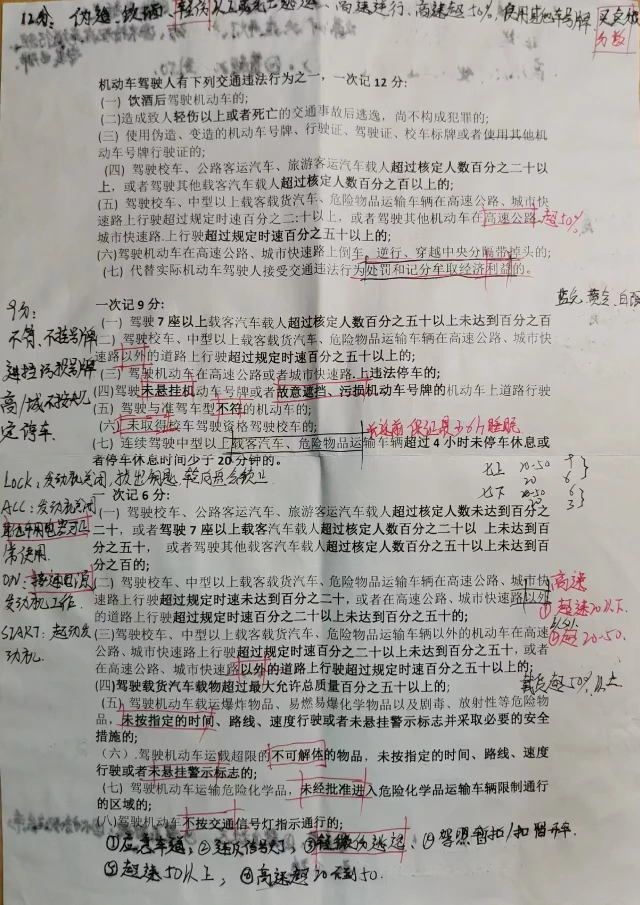 12分: 伪造、饮酒、轻伤以上或死亡逃逸、高速逆行、高速超50%,使用其他车号牌 买卖
分数
机动车驾驶人有下列交通违法行为之一,一次记12分:
(一) 饮酒后驾驶机动车的;
(二)造成致人轻伤以上或者死亡的交通事故后逃逸,尚不构成犯罪的;
(三) 使用伪造、变造的机动车号牌、行驶证、驾驶证、校车标牌或者使用其他机
动车号牌行驶证的;
(四) 驾驶校车、公路客运汽车、旅游客运汽车载人超过核定人数百分之二十以
上,或者驾驶其他载客汽车载人超过核定人数百分之百以上的;
(五) 驾驶校车、中型以上载客载货汽车、危险物品运输车辆在高速公路、城市快
速路上行驶超过规定时速百分之二;十以上,或者驾驶其他机动车在高速公路、 超50%
城市快速路.上行驶超过规定时速百分之五十以上的;
(六)驾驶机动车在高速公路、城市快速路上倒车、逆行、穿越中央分隔带掉头的;
(七) 代替实际机动车驾驶人接受交通违法行为处罚和记分牟取经济利益的。
9分:
不符、不挂号牌
遮挡污损号牌
高/城不按规
定停车.
一次记9分:
(一) 驾驶7座以上载客汽车载人超过核定人数百分之五十以上未达到百分之百
(二) 驾驶校车、中型以上载客载货汽车、危险物品运输车辆在高速公路、城市快
速路以外的道路上行驶超过规定时速百分之五十以上的;
(三) 驾驶机动车在高速公路或者城市快速路.上违法停车的;
(四)驾驶未悬挂机动车号牌或者故意遮挡、污损机动车号牌的机动车上道路行驶
(五) 驾驶与准驾车型不符的机动车的;
(六) 未取得校车驾驶资格驾驶校车的;
(七) 连续驾驶中型以上载客汽车、危险物品运输车辆超过4小时未停车休息或
者停车休息时间少于20分钟的。
七上 20-50 9
20 6
七下 20-50 6
20 3
LOCK:发动机关闭,拔出钥匙,转向盘会锁止
ACC:发动机关闭
常使用.
ON:
发动机工作.
START:起动发
动机.
一次记6分:
(一) 驾驶校车、公路客运汽车、旅游客运汽车载人超过核定人数未达到百分之
二十,或者驾驶7座以上载客汽车载人超过核定人数百分之二十以 上未达到百
分之五十, 或者驾驶其他载客汽车载人超过核定人数百分之五十以上未达到百
分之百的;
(二) 驾驶校车、中型以上载客载货汽车、危险物品运输车辆在高速公路、城市快
速路上行驶超过规定时速未达到百分之二十,或者在高速公路、城市快速路以外
的道路上行驶超过规定时速百分之二十以上未达到百分之五十的;
高速
①超速20以下.
以外:
②超20-50.
(三)驾驶校车、中型以上载客载货汽车、危险物品运输车辆以外的机动车在高速
公路、城市快速路上行驶超过规定时速百分之二十以上未达到百分之五十,或者
在高速公路、城市快速路以外的道路上行驶超过规定时速百分之五十以上的;
(四)驾驶载货汽车载物超过最大允许总质量百分之五十以上的;
载货超50%以上
(五) 驾驶机动车载运爆炸物品、易燃易爆化学物品以及剧毒、放射性等危险物
品,未按指定的时间、路线、速度行驶或者未悬挂警示标志并采取必要的安全
措施的;
(六) .驾驶机动车运载超限的不可解体的物品,未按指定的时间、路线、速度
行驶或者未悬挂警示标志的;
(七) 驾驶机动车运输危险化学品,未经批准进入危险化学品运输车辆限制通行
的区域的;
(八)驾驶机动车不按交通信号灯指示通行的;
①应急车道,②违反信号灯,③轻微伤逃逸、④驾照暂扣/扣留开车.
⑤超速50以上,⑥高速超20到50.